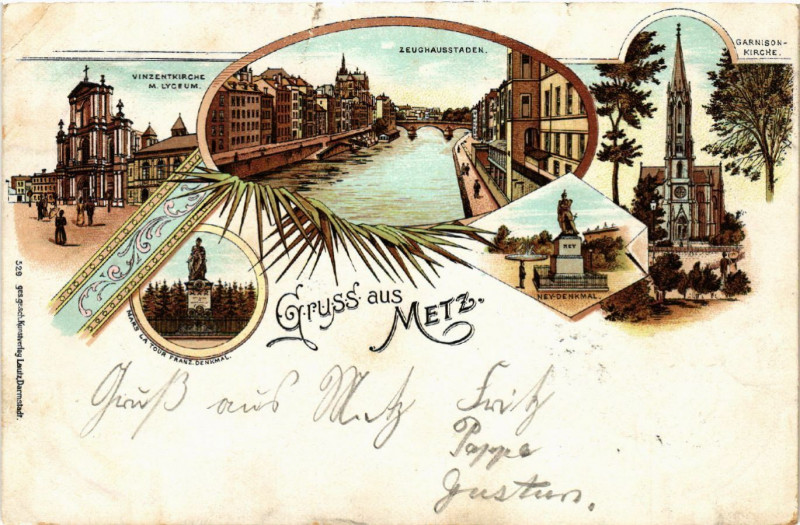 VINZENTKIRCHE
M. LYCEUM.
ZEUGHAUSSTADEN.
GARNISON-
KIRCHE.
NEY
NEY-DENKMAL.
MARS LA TOUR FRANZ. DENKMAL.
Gruss aus
METZ.
529 ges.gesch. Kunstverlag Lautz, Darmstadt.
Gruß aus Metz Fritz
Pappe